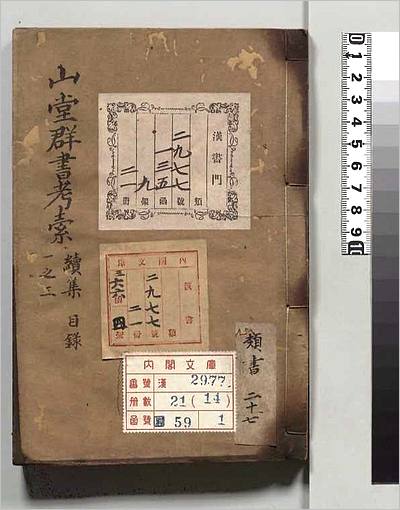 山堂群書考索
續集
目錄
一之三
漢書門
二九七七
一三五
九
二一
類
號
函
架
冊
內閣文庫
漢書
二九七七
二一
類
號
內閣文庫
番號
漢
2977
冊數
21 (14)
函號
59
1
類書
二十七
0 1 2 3 4 5 6 7 8 9 10